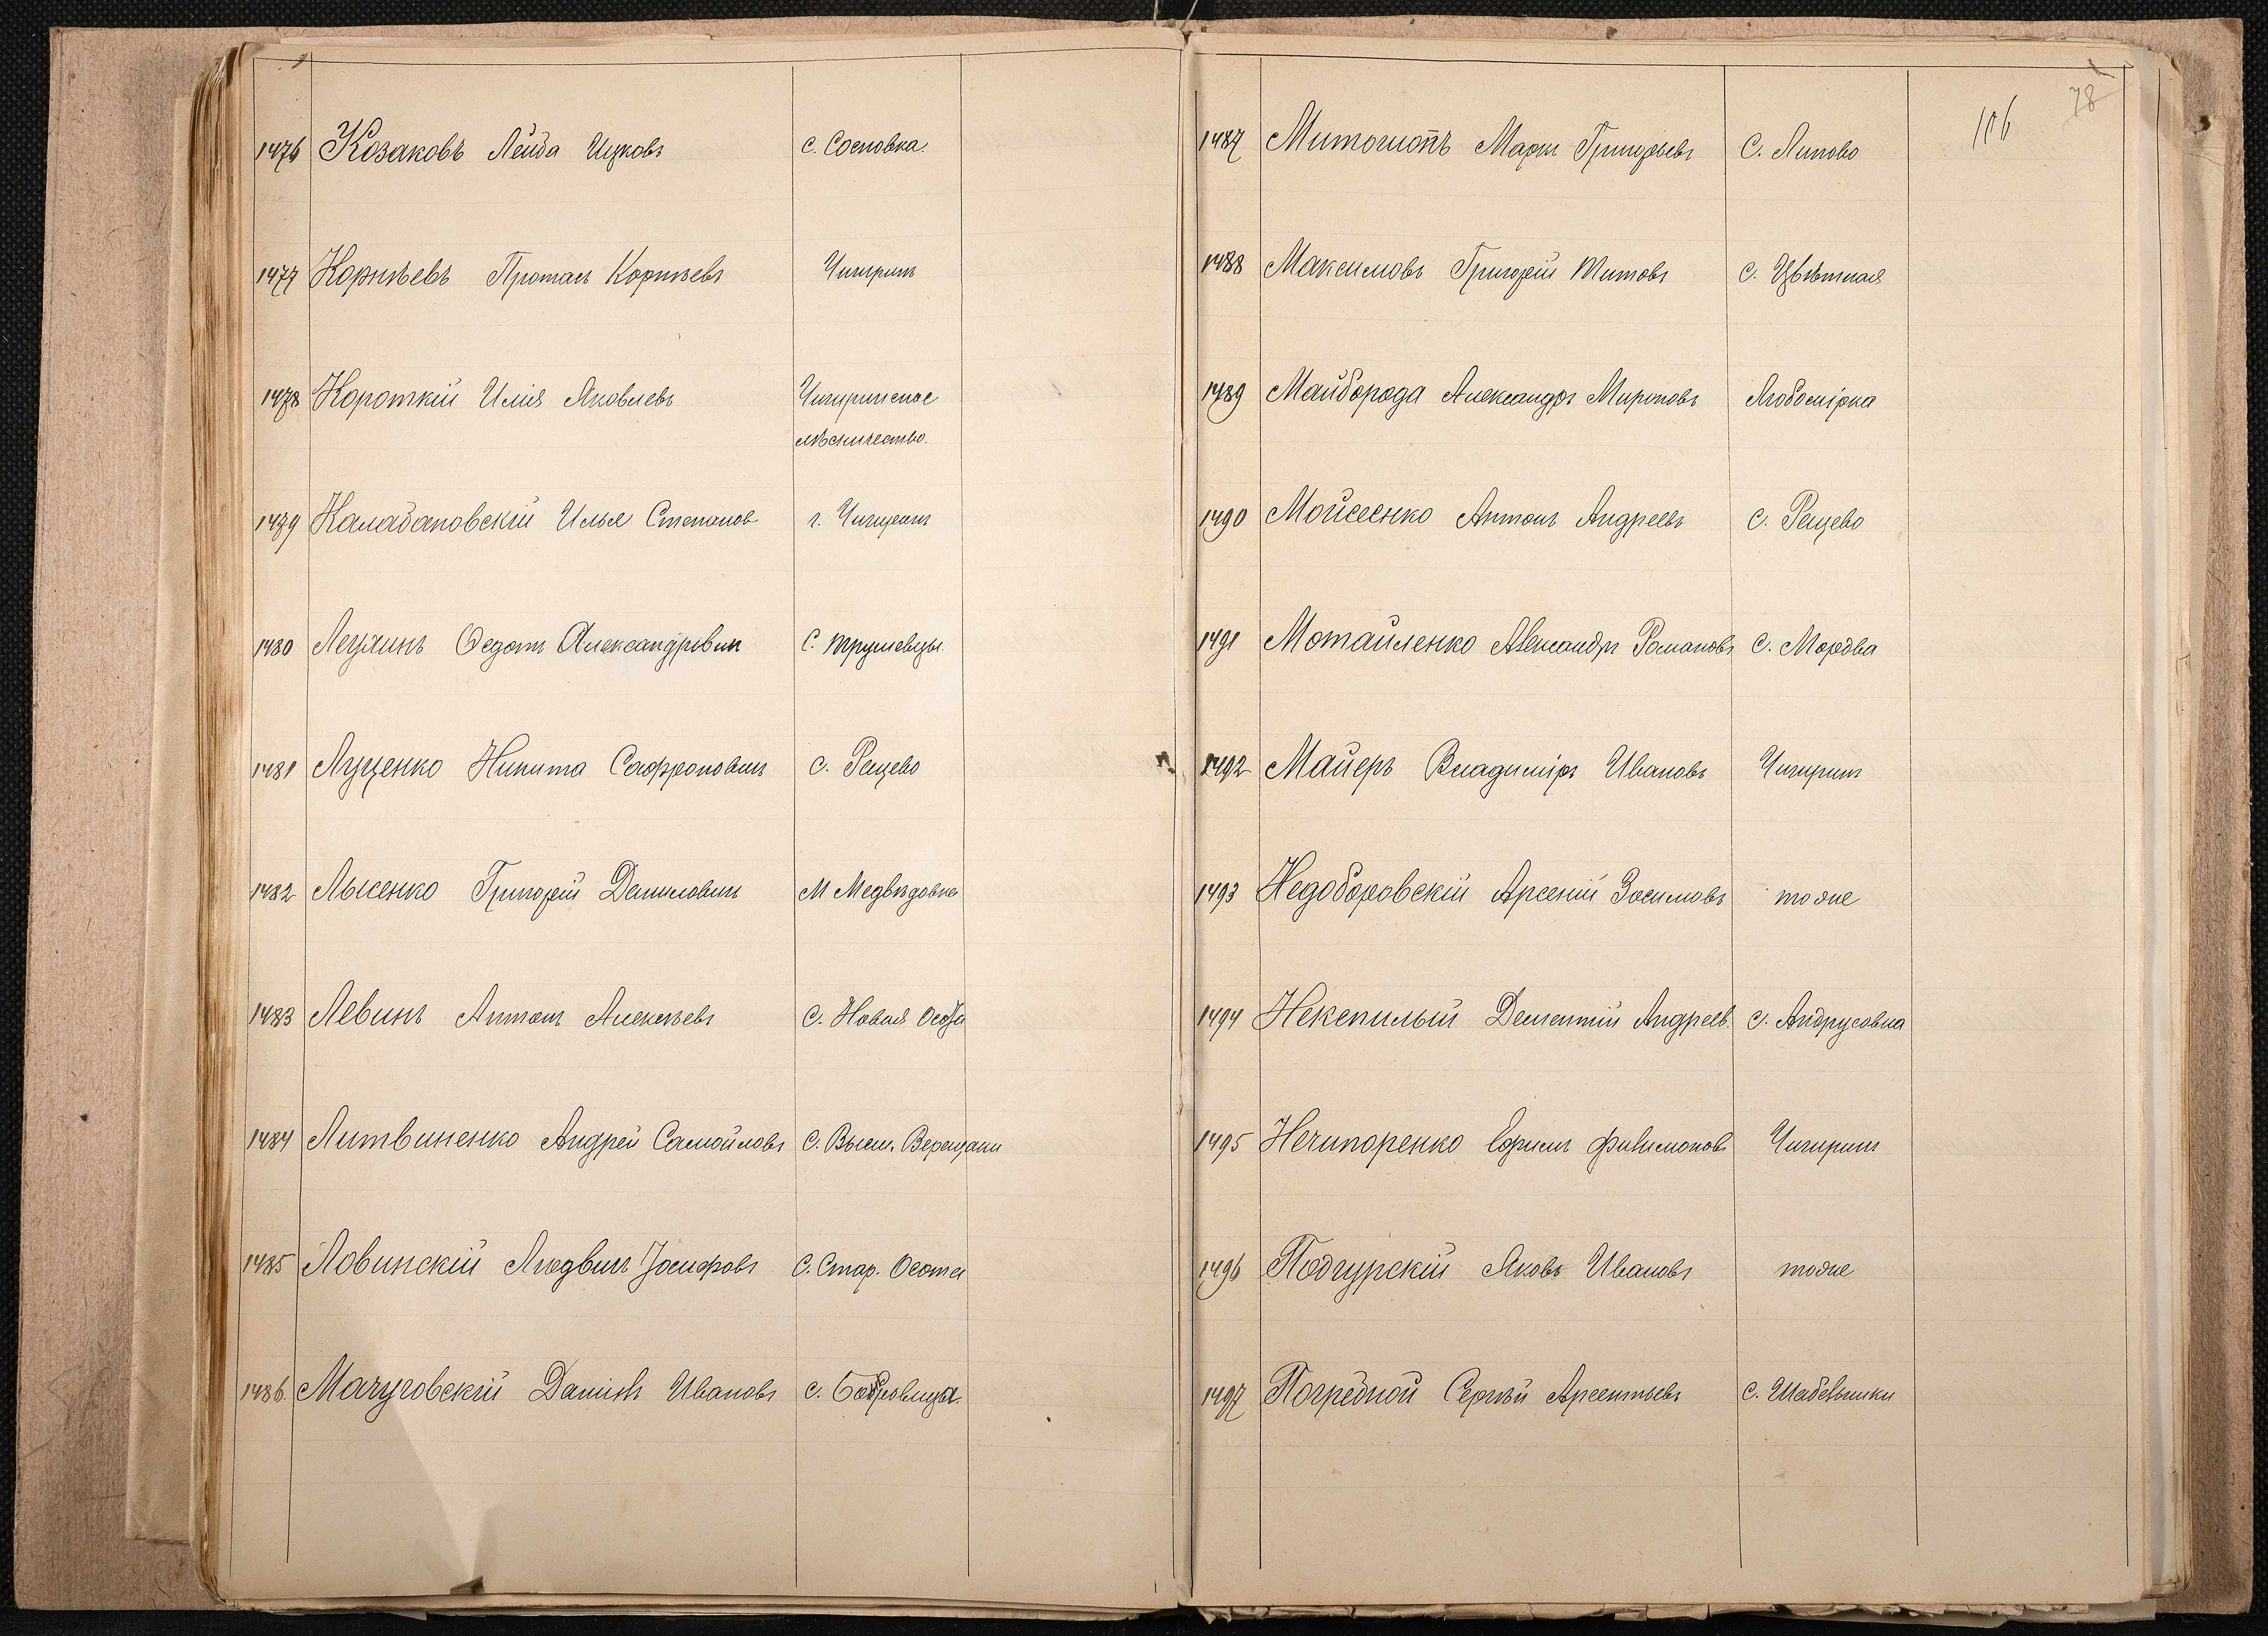 1476 Козаковъ Лейба Ицковъ с. Сосновка.
1477 Корнѣевъ Протасъ Корнѣевъ Чигиринъ
1478 Короткій Илія Яковлевъ Чигиринское
лѣсничество.
1479 Калабановскій Илья Степанов г. Чигиринъ
1480 Федотъ Александровичъ с. Трушевцы.
1481 Луценко Никита Сафроновичъ с. Рещево
1482 Лысенко Григорій Даниловичъ М Медвѣдовка
1483 Левинъ Антонъ Алексѣевъ с. Новая Осота
1484 Литвиненко Андрей Самойловъ с. Высш. Верещаки
1485 Ловинскій Людвигъ Іосифовъ с. Стар. Осота
1486. Мачуговскій Даніилъ Ивановъ с. Боровица.
106 78
1487 Марк Григорьевъ С. Липово
1488 Максимовъ Григорій Титовъ с. Цвѣтная
1489 Майборода Александръ Мироновъ Любомірка
1490 Мойсеенко Антонъ Андреевъ с. Рещево
1491 Мотайленко Александръ Романовъ с. Мордва
1492 Майеръ Владиміръ Ивановъ Чигиринъ
1493 Недоборовскій Арсеній Зосимовъ тоже
1494 Некепилый Дементій Андреев. с. Андрусовка
1495 Нечипоренко Ефимъ Филимоновъ Чигиринъ
1496 Подгурскій Яковъ Ивановъ тоже
1497 Погребной Сергѣй Арсентьевъ с. Шабельники